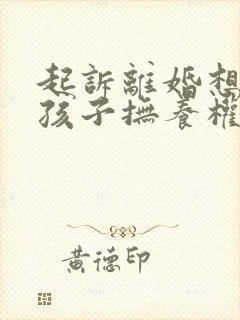 起訴離婚想
孩子撫養權
黃德印